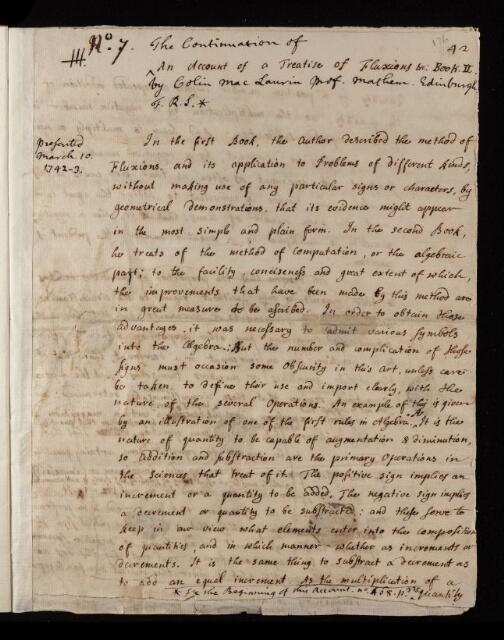 III. No. 7. The Continuation of 42
An Account of a Treatise of Fluxions &c. Book II
by Colin Mac Laurin Prof. Mathem. Edinburgh
F. R. S. *
Presented
March. 10.
1742-3.
In the first Book, the Author described the method of
Fluxions, and its application to Problems of different kinds,
without making use of any particular signs or characters, by
geometrical demonstrations, that its evidence might appear
in the most simple and plain form. In the second Book,
he treats of the method of computation, or the algebraic
part; to the facility, conciseness and great extent of which,
the improvements that have been made by this method are
in great measure to be ascribed. In order to obtain those
advantages, it was necessary to admit various symbols
into the Algebra; But the number and complication of those
signs must occasion some Obscurity in this art, unless care
be taken to define their use and import clearly, with the
nature of the several Operations. An example of this is given
by an illustration of one of the first rules in Algebra. It is the
nature of quantity to be capable of augmentation & diminution,
so addition and substraction are the primary Operations in
the Sciences that treat of it. The positive sign implies an
increment or a quantity to be added. The negative sign implies
a decrement or quantity to be substracted; and these serve to
keep in our view what elements enter into the composition
of quantities, and in which manner whether as increments or
decrements. It is the same thing to substract a decrement as
to add an equal increment. As the multiplication of a
* See the Beginning of this Account. no. 468. p. quantity